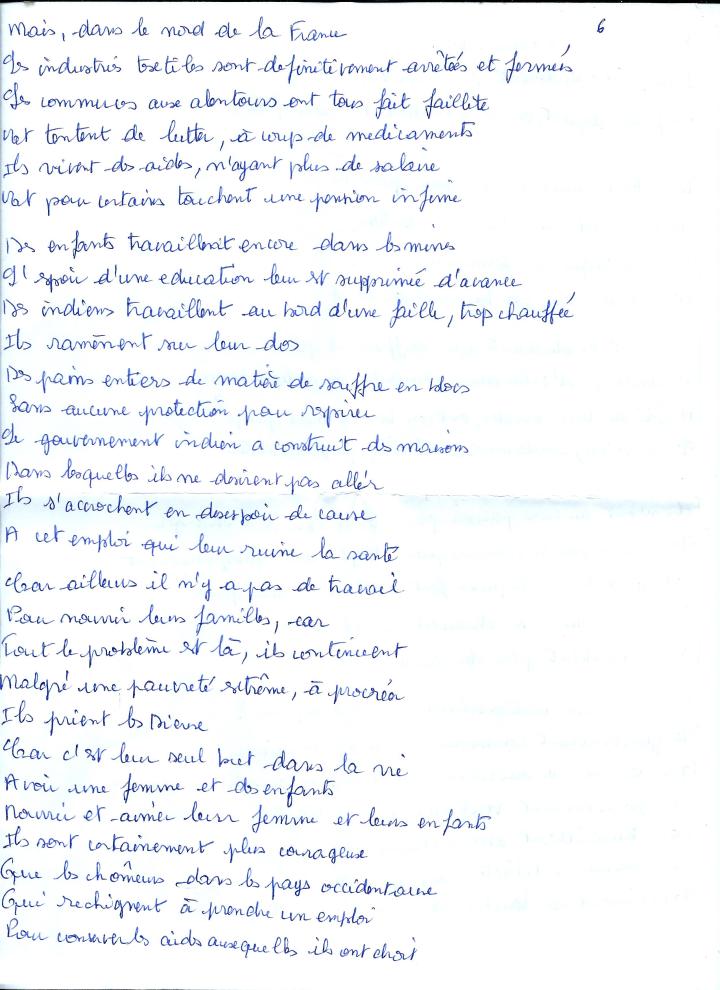 6
Mais, dans le nord de la France
Les industries textiles sont définitivement arrêtées et fermées
Les commerces aux alentours ont tous fait faillite
tentent de lutter, à coup de medicaments
Ils vivent des aides, n'ayant plus de salaire
pour certains touchent une pension infime
Des enfants travaillent encore dans les mines
L'espoir d'une education leur est supprimé d'avance
Des indiens travaillent au bord d'une faille, trop chauffée
Ils ramènent sur leur dos
Des pains entiers de matière de souffre en blocs
Sans aucune protection pour respirer
Le gouvernement indien a construit des maisons
Dans lesquelles ils ne desirent pas aller
Ils s'accrochent en desespoir de cause
A cet emploi qui leur ruine la santé
Car ailleurs il n'y a pas de travail
Pour nourrir leurs familles, car
Tout le problème est là, ils continuent
Malgré une pauvreté extrême, à procréer
Ils prient les Dieux
Car c'est leur seul but dans la vie
Avoir une femme et des enfants
Nourrir et aimer leur femme et leurs enfants
Ils sont certainement plus courageux
Que les chômeurs dans les pays occidentaux
Qui rechignent à prendre un emploi
Pour conserver les aides auxquelles ils ont droit